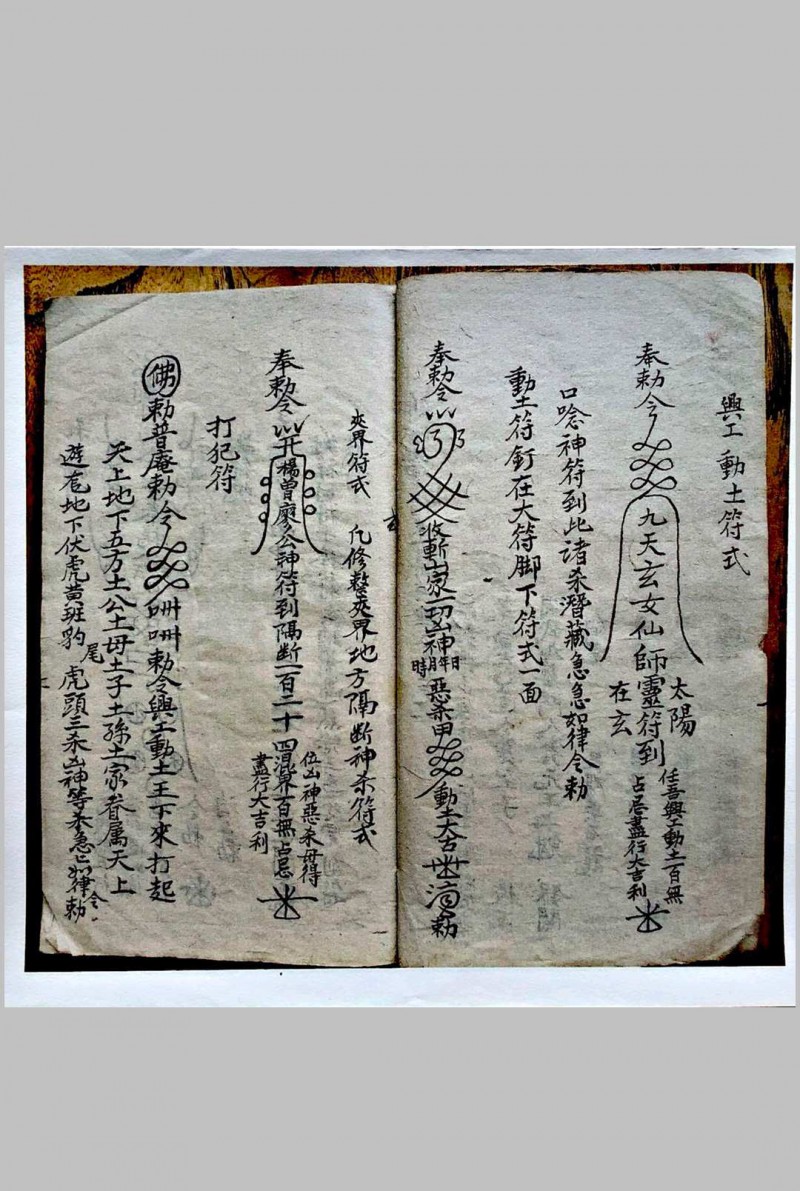 興工動土符式
奉勅令
九天玄女仙師靈符到
太陽
在玄
任吾興工動土百無
占忌盡行大吉利
口唸神符到此諸杀潛藏急急如律令勅
動土符釘在大符脚下符式一面
奉勅令
收斬山家一切凶神
年月日時
惡杀
動土大吉
勅
夾界符式 凡修整夾界地方隔斷神杀符式
奉勅令
楊曾廖公神符到隔斷一百二十四混界一百無占忌
位凶神惡杀毋得
盡行大吉利
打犯符
佛勅普庵勅令
勅令興工動土王下來打起
天上地下五方土公土母土子土孫土家眷属天上
遊尾地下伏虎黄班豹尾虎頭三杀凶神等杀急急如律令勅